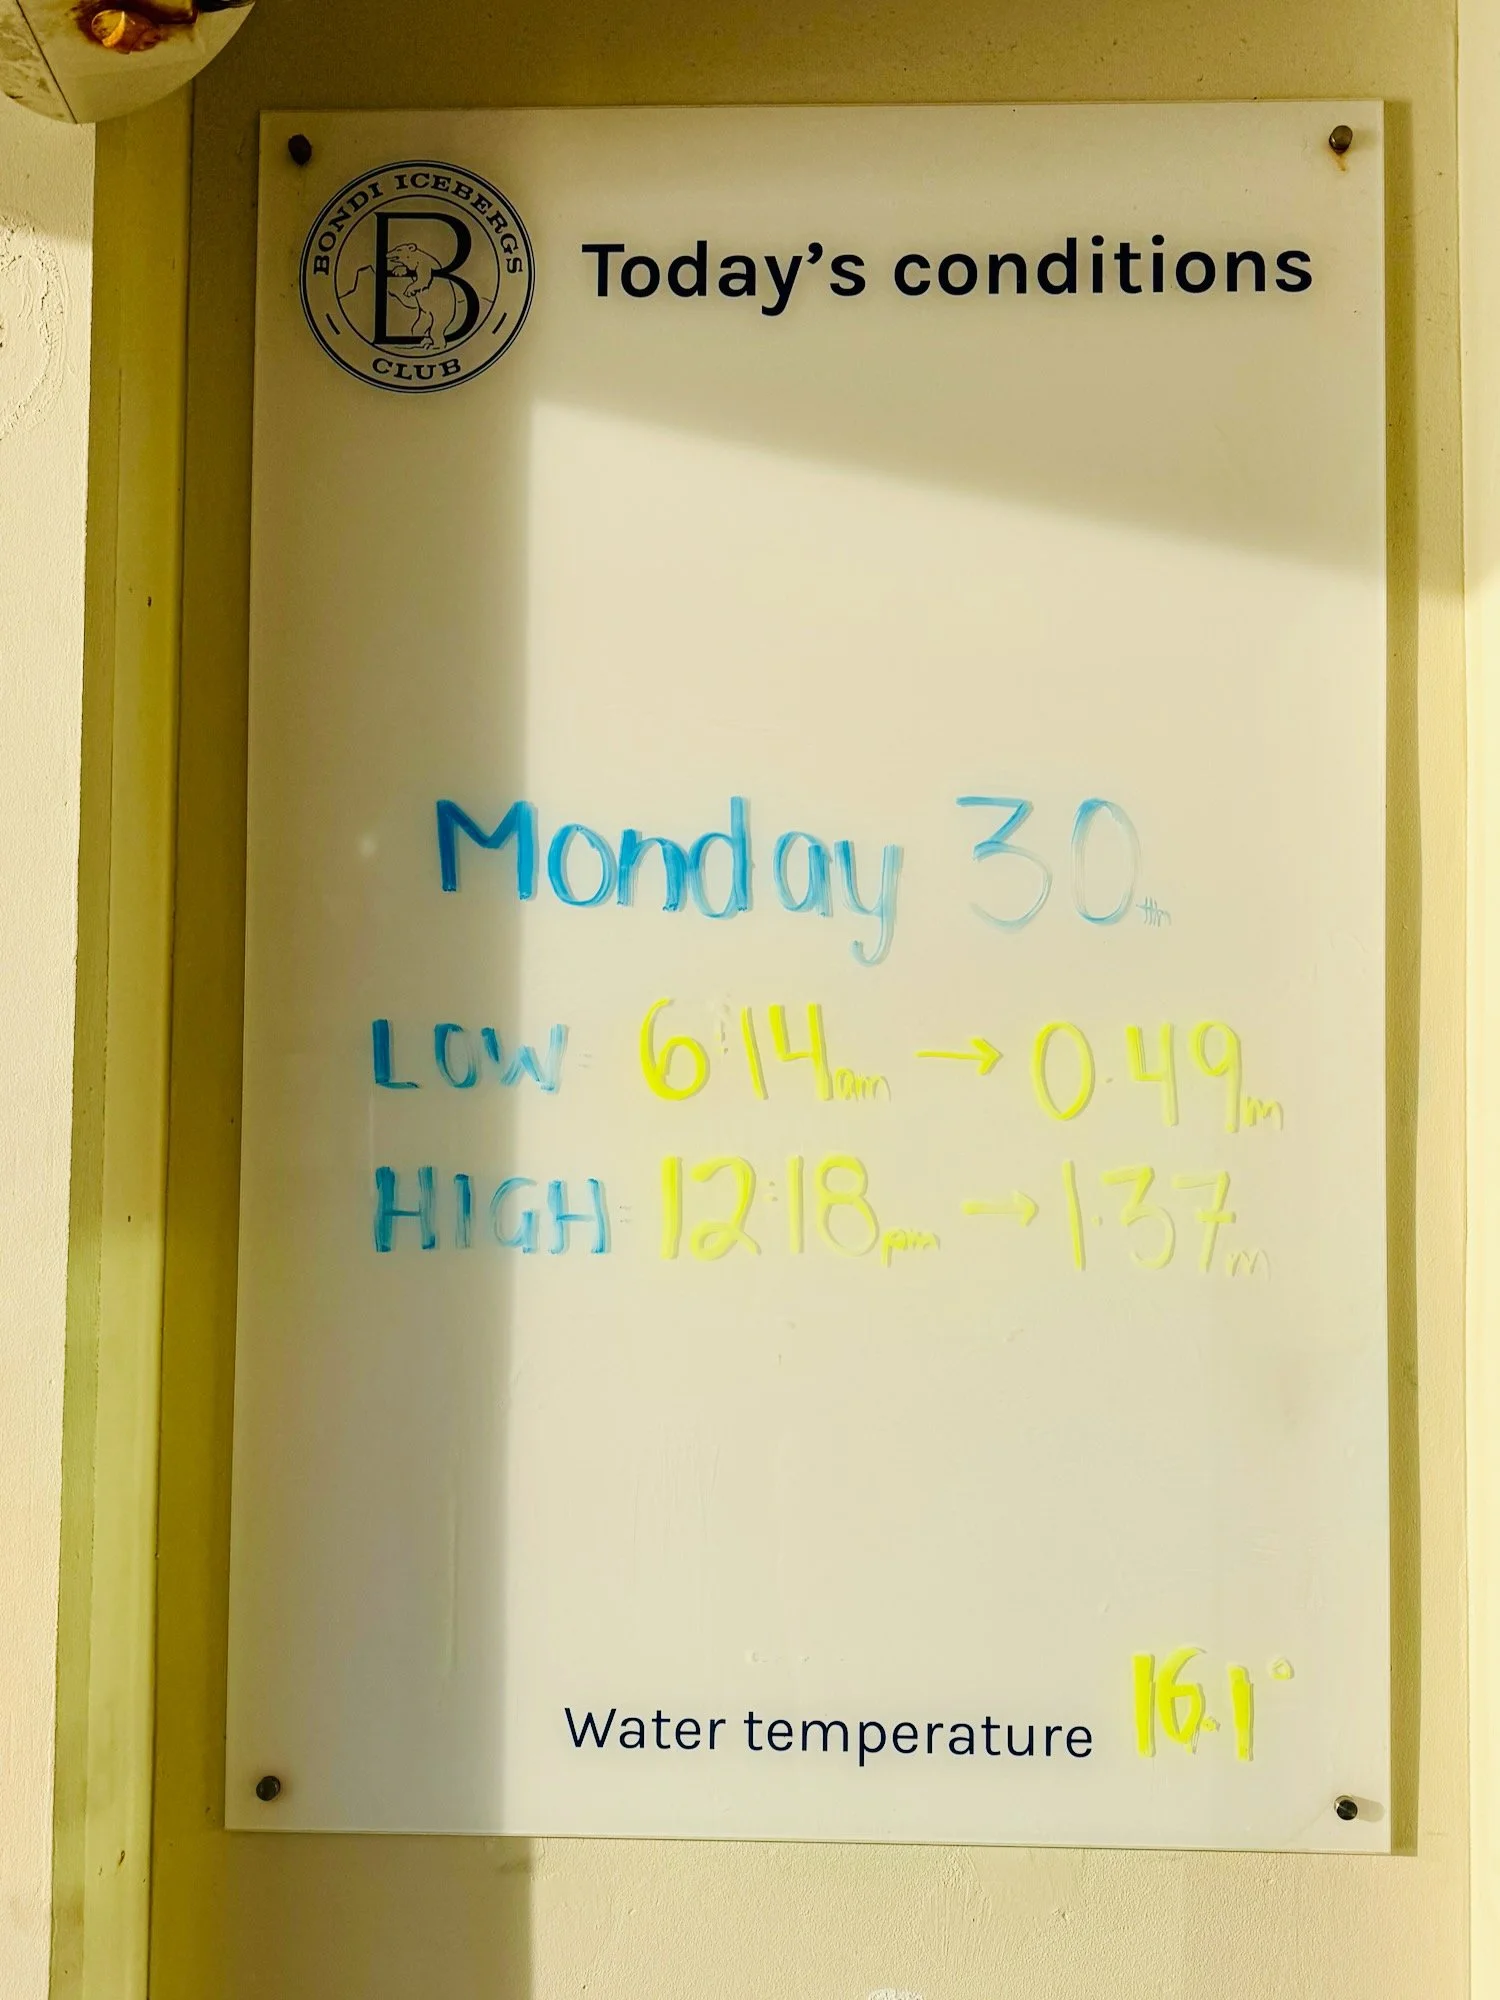 BONDI ICEBERGS
B
CLUB
Today's conditions
Monday 30th
LOW: 6:14am → 0.49m
HIGH: 12:18pm → 1.37m
Water temperature 16.1°